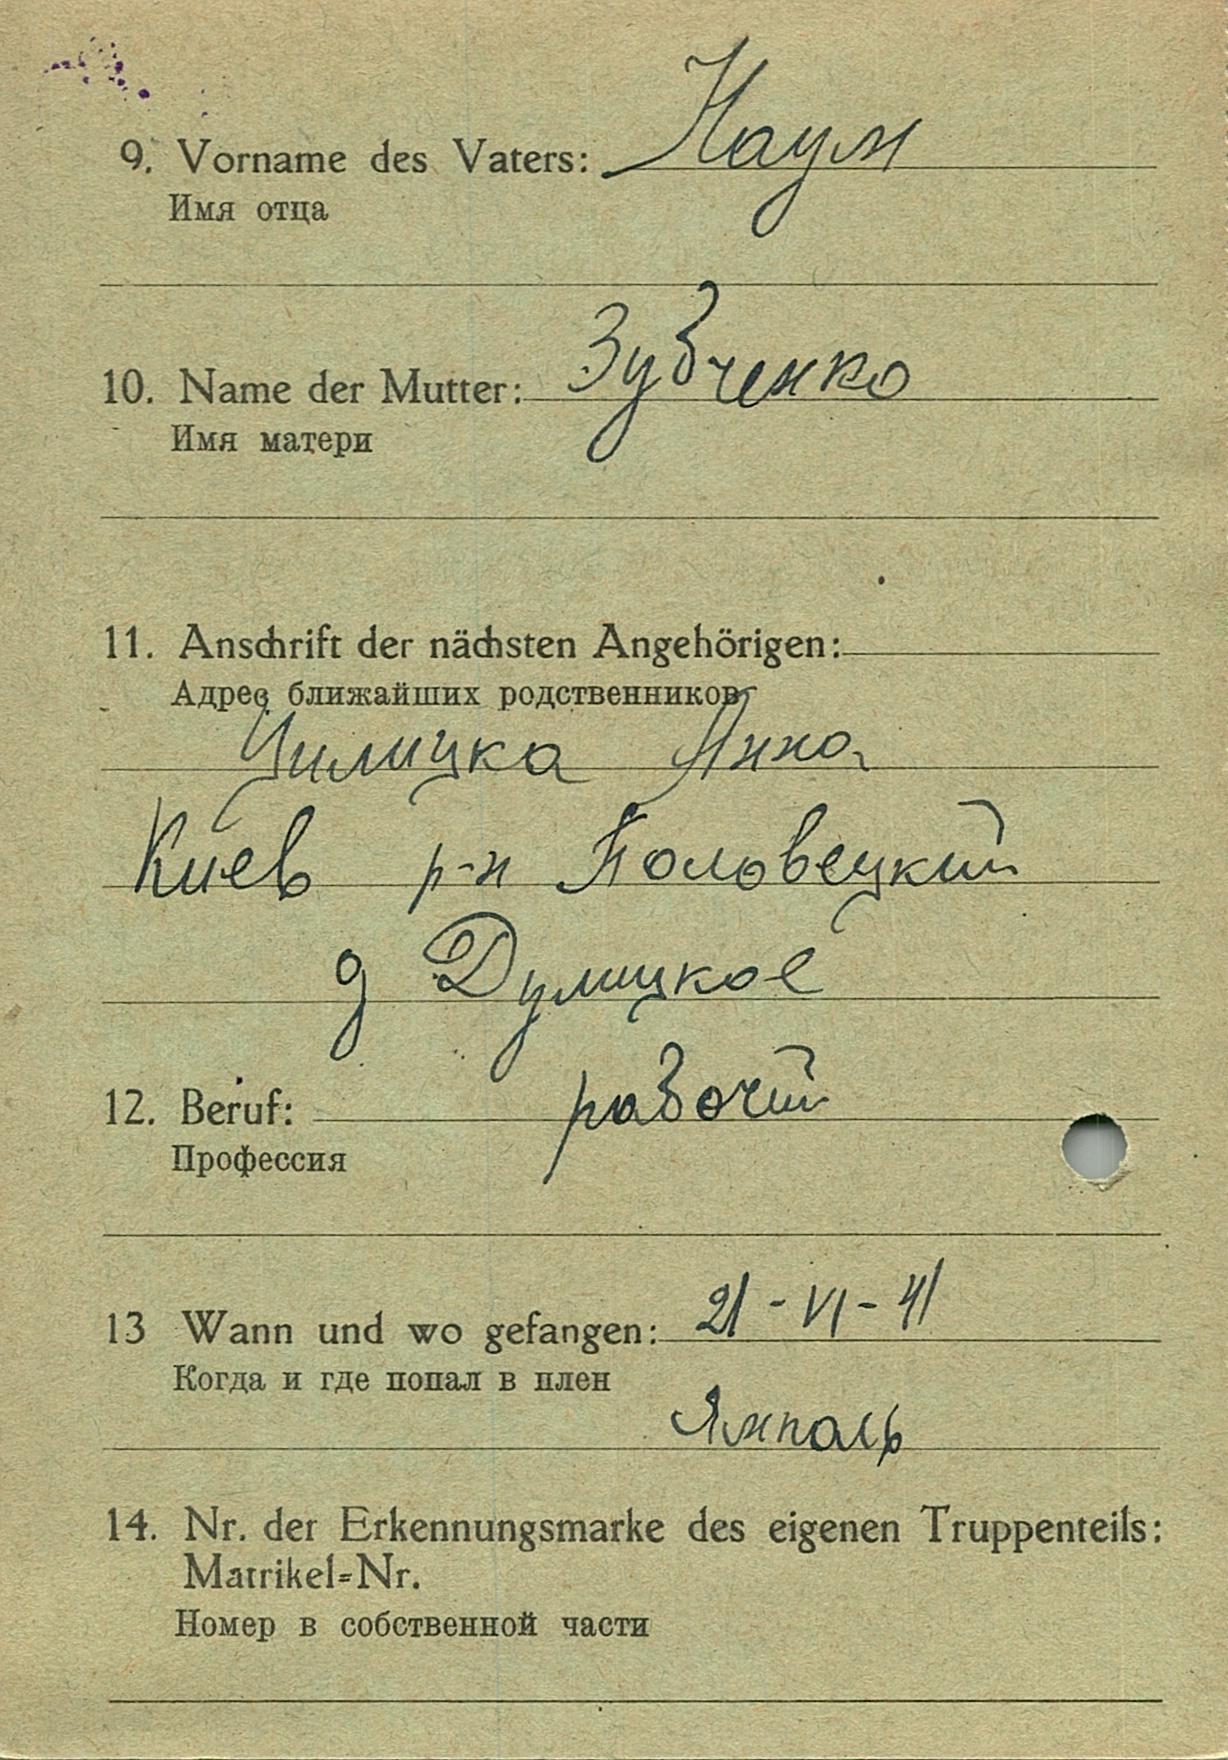 9. Vorname des Vaters: Наум
Имя отца
10. Name der Mutter: Зубченко
Имя матери
11. Anschrift der nächsten Angehörigen:
Адрес ближайших родственников
Анна
Киев р-н Половецкий
д Думицкое
12. Beruf: рабочий
Профессия
13 Wann und wo gefangen: 21-VI-41
Когда и где попал в плен
Ямполь
14. Nr. der Erkennungsmarke des eigenen Truppenteils:
Matrikel=Nr.
Номер в собственной части